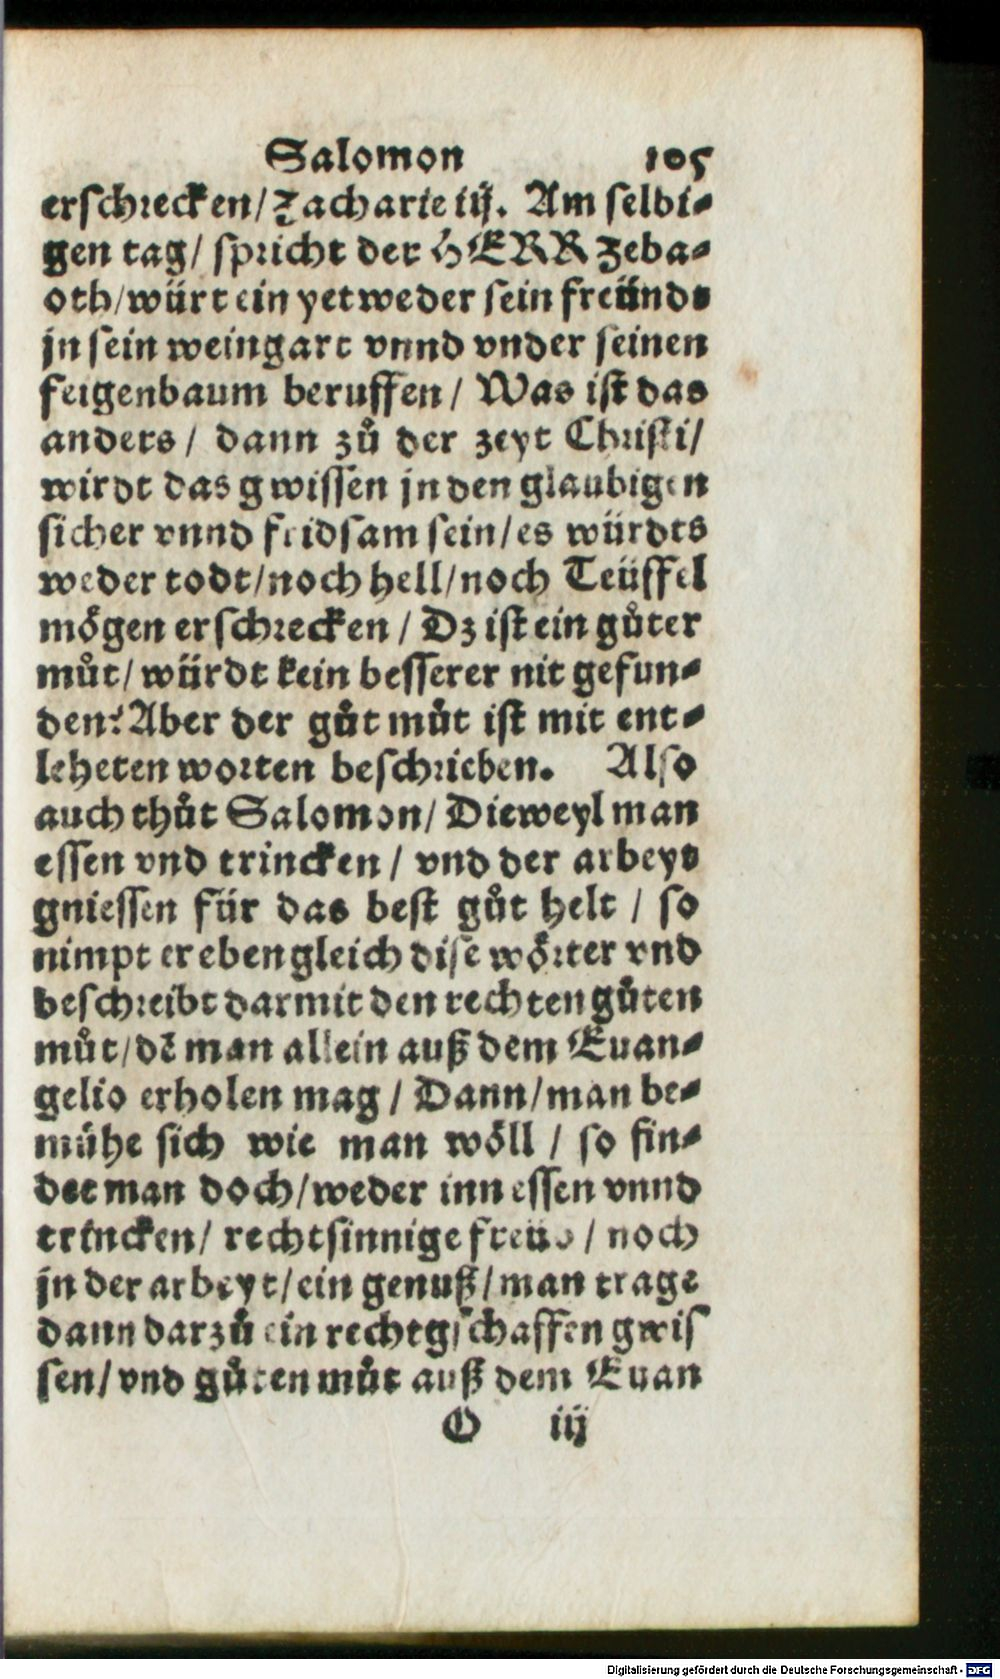 Salomon 105
erschrecken/ Zacharie iij. Am selbi-
gen tag/ spricht der HERR Zeba-
oth/ würt ein yetweder sein freünde
jn sein weingart vnnd vnder seinen
feigenbaum beruffen/ Was ist das
anders/ dann zů der zeyt Christi/
wirdt das gwissen jn den glaubigen
sicher vnnd fridsam sein/ es würdts
weder todt/ noch hell/ noch Teüffel
mögen erschrecken/ Dz ist ein gůter
můt/ würdt kein besserer nit gefun-
den: Aber der gůt můt ist mit ent-
leheten worten beschrieben. Also
auch thůt Salomon/ Dieweyl man
essen vnd trincken/ vnd der arbeyt
gniessen für das best gůt helt/ so
nimpt er eben gleich dise wörter vnd
beschreibt darmit den rechten gůten
můt/ dẽ man allein auß dem Euan-
gelio erholen mag/ Dann/ man be-
mühe sich wie man wöll/ so fin-
det man doch/ weder inn essen vnnd
trincken/ rechtsinnige freüd/ noch
jn der arbeyt/ ein genuß/ man trage
dann darzů ein rechtgschaffen gwis
sen/ vnd gůten můt auß dem Euan
O iij
Digitalisierung gefördert durch die Deutsche Forschungsgemeinschaft - DFG